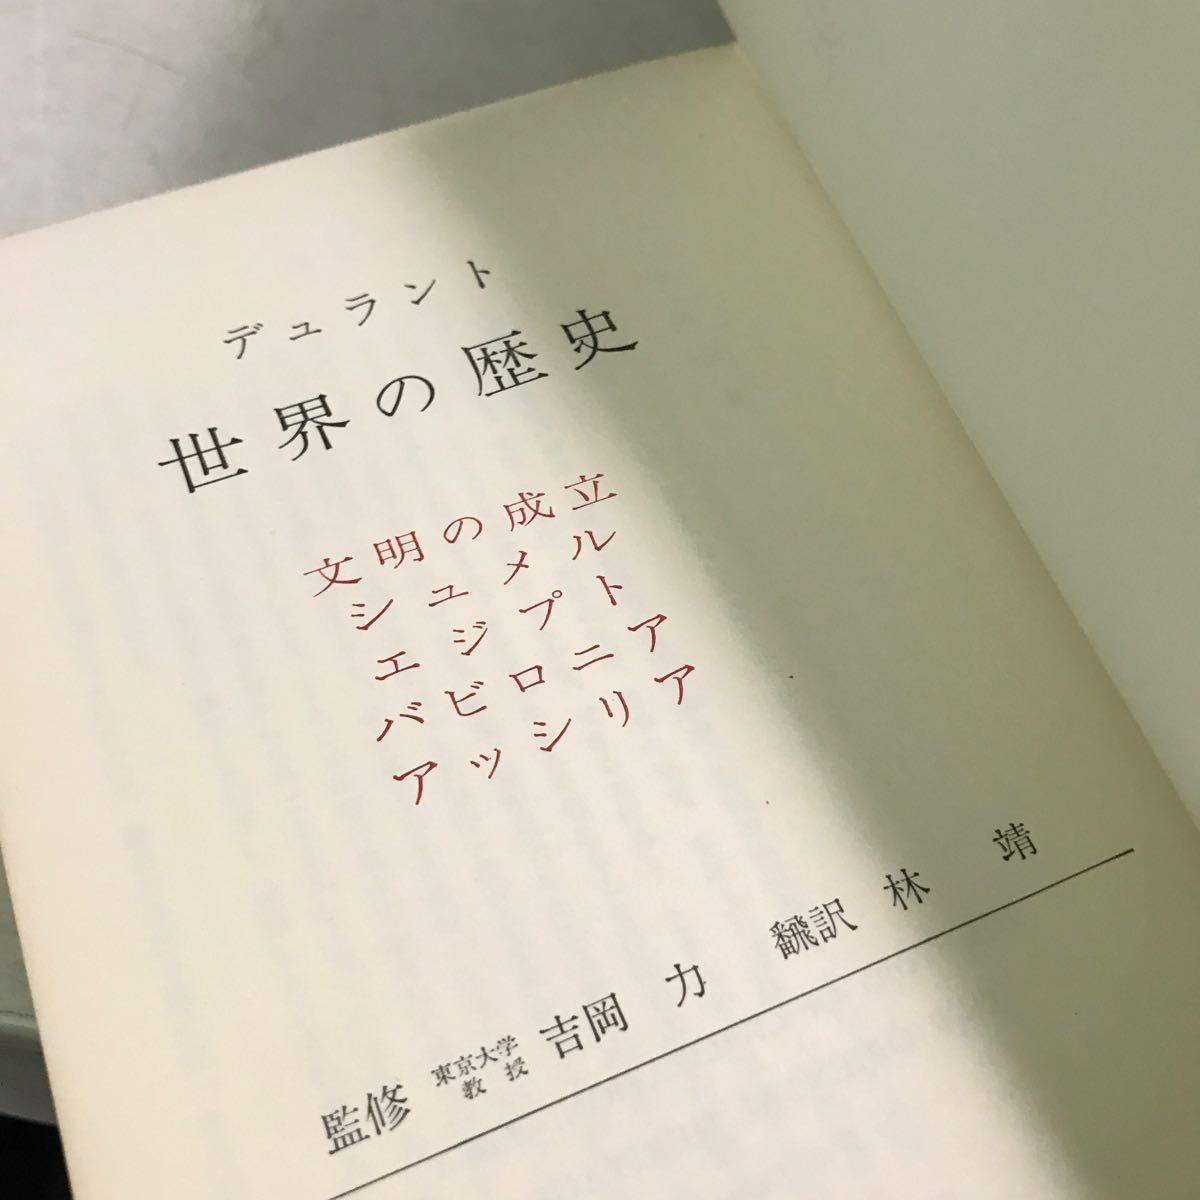 デュラント
世界の歴史
文明の成立
シュメル
エジプト
バビロニア
アッシリア
監修 東京大学教授 吉岡 力 飜訳 林 靖